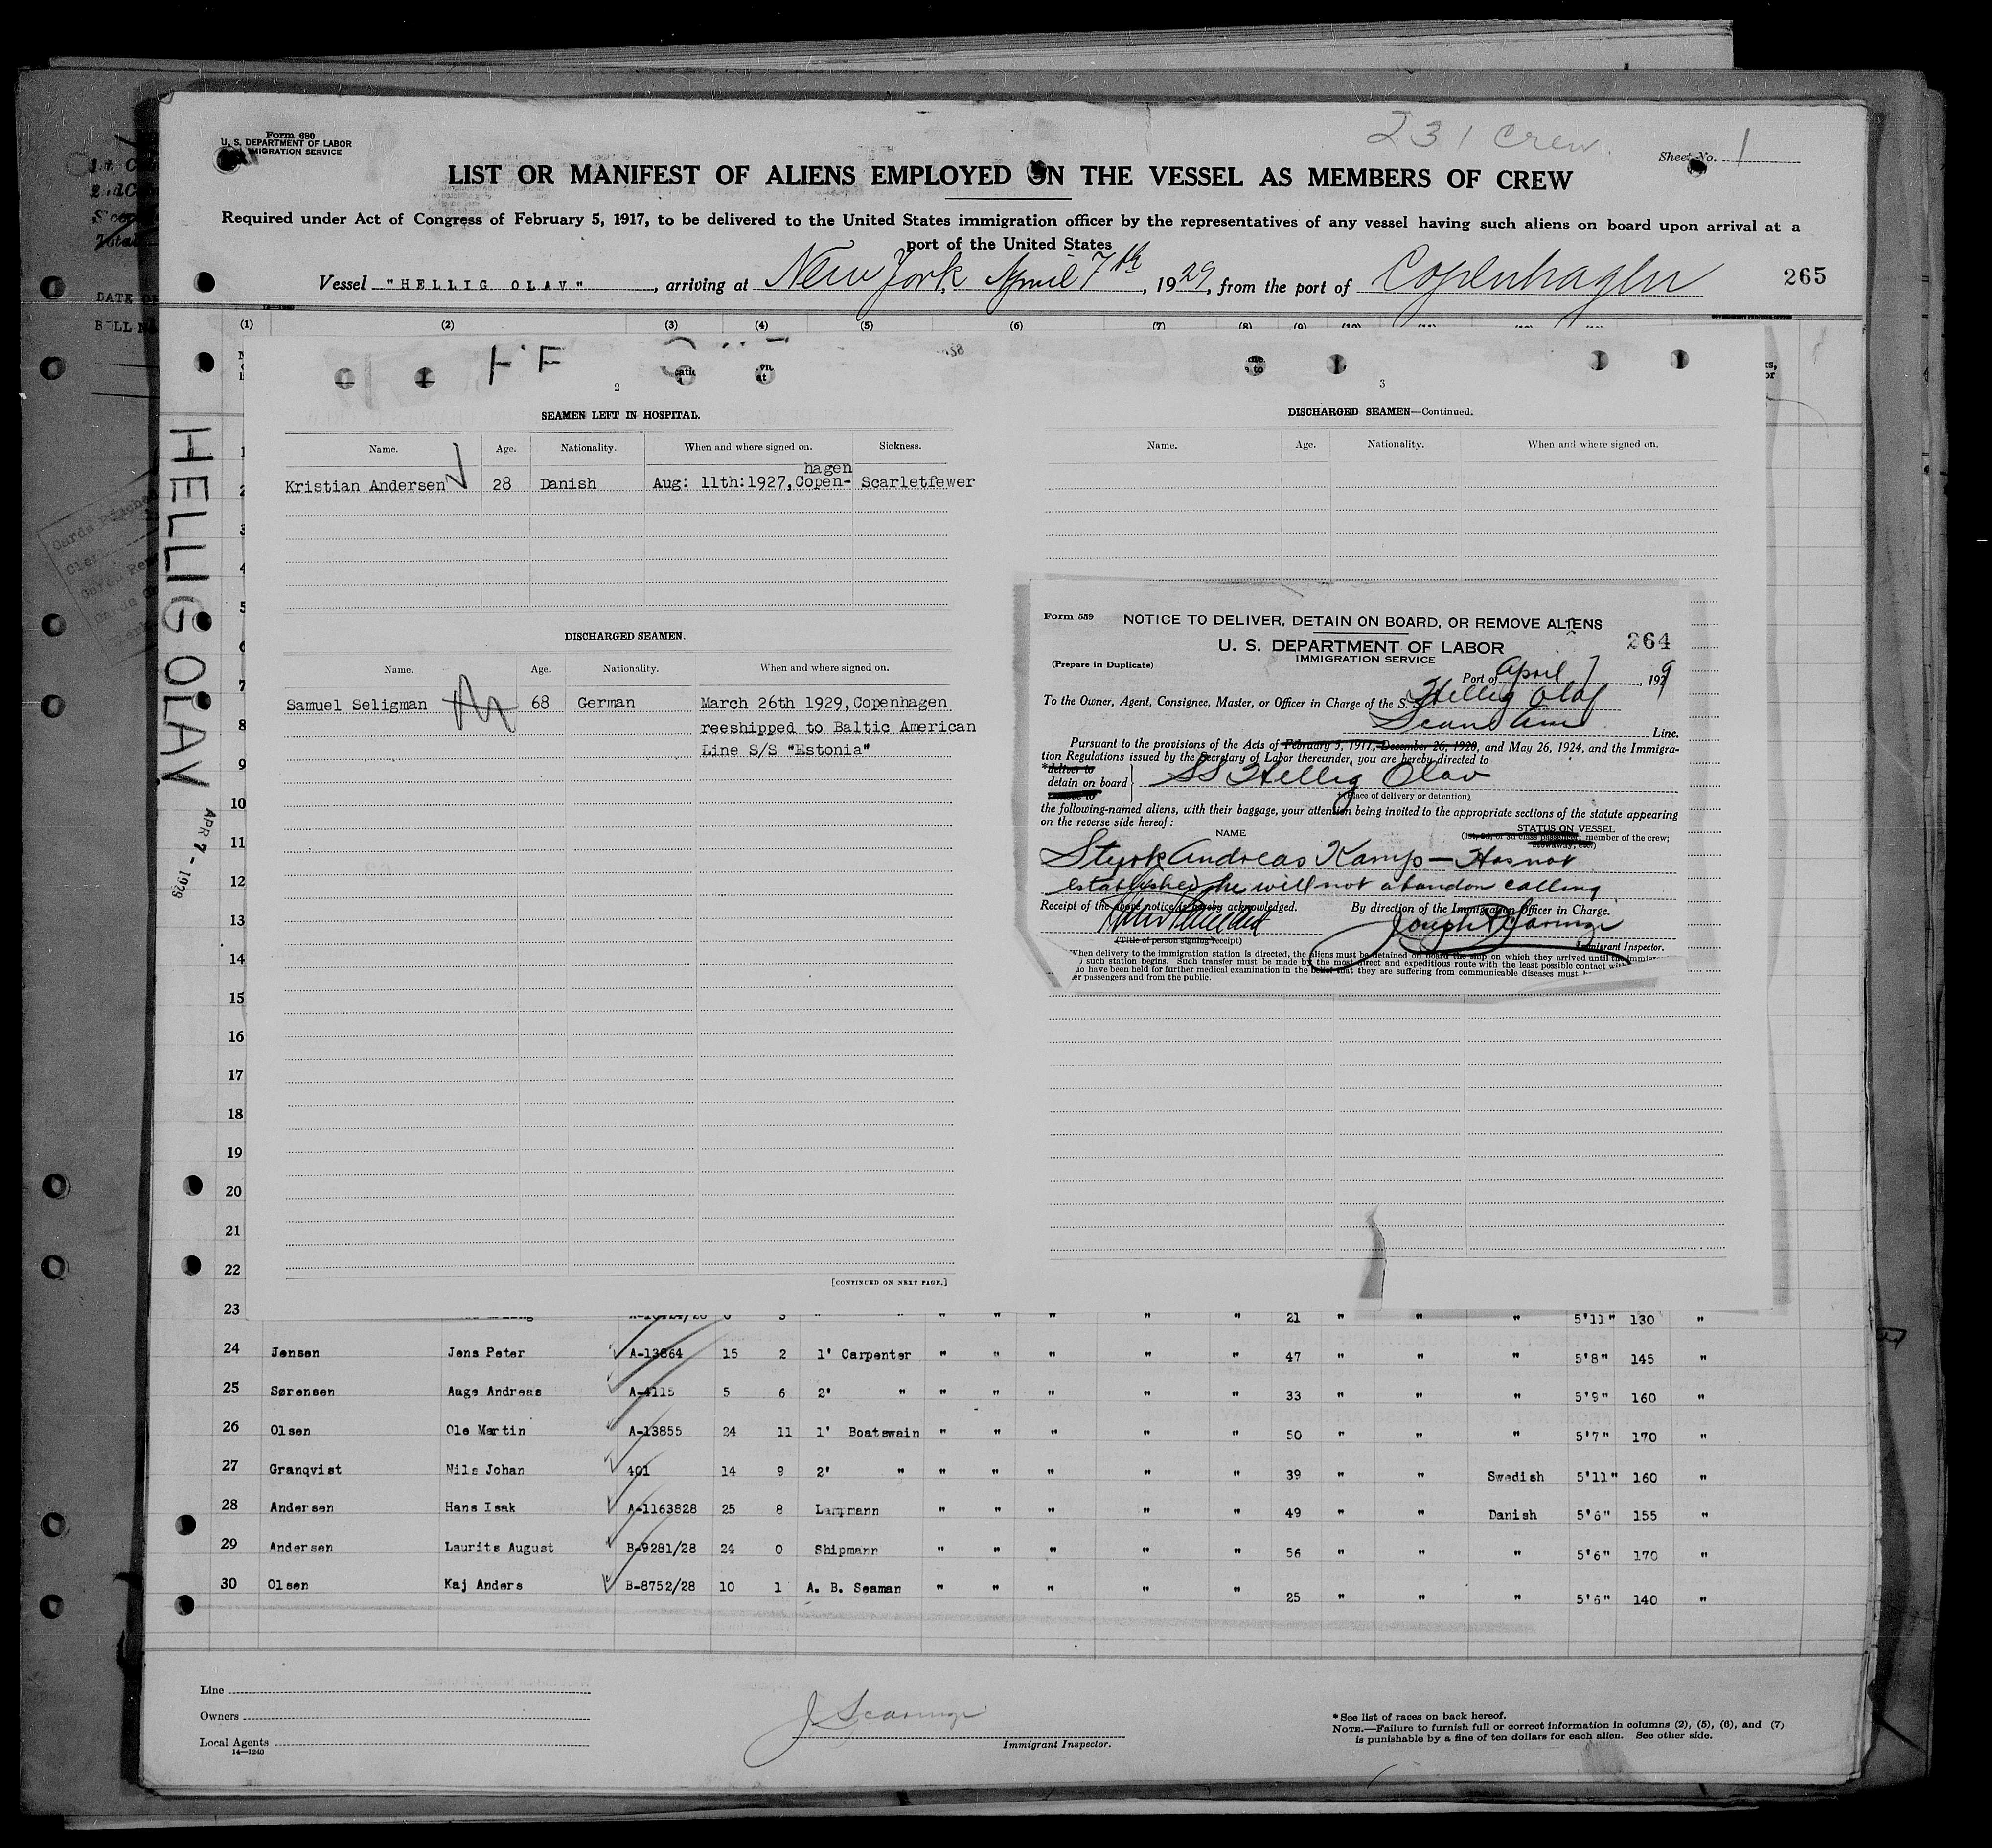 Form 680
U. S. DEPARTMENT OF LABOR
IMMIGRATION SERVICE
231 Crew.
Sheet No. 1
LIST OR MANIFEST OF ALIENS EMPLOYED ON THE VESSEL AS MEMBERS OF CREW
Required under Act of Congress of February 5, 1917, to be delivered to the United States immigration officer by the representatives of any vessel having such aliens on board upon arrival at a
port of the United States
Vessel "HELLIG OLAV", arriving at New York, April 7th, 1929, from the port of Copenhagen
265
(1) (2) (3) (4) (5) (6) (7) (8) (9) (10)
HELLIG OLAV
APR 7 - 1929
2
SEAMEN LEFT IN HOSPITAL.
Name. Age. Nationality. When and where signed on. Sickness.
hagen
Kristian Andersen 28 Danish Aug: 11th:1927, Copen- Scarletfewer
DISCHARGED SEAMEN.
Name. Age. Nationality. When and where signed on.
Samuel Seligman 68 German March 26th 1929, Copenhagen
reeshipped to Baltic American
Line S/S "Estonia"
[CONTINUED ON NEXT PAGE.]
3
DISCHARGED SEAMEN—Continued.
Name. Age. Nationality. When and where signed on.
Form 559
NOTICE TO DELIVER, DETAIN ON BOARD, OR REMOVE ALIENS
U. S. DEPARTMENT OF LABOR
264
IMMIGRATION SERVICE
(Prepare in Duplicate)
Port of April 7, 1929
To the Owner, Agent, Consignee, Master, or Officer in Charge of the S. Hellig Olaf
Scand Am Line.
Pursuant to the provisions of the Acts of February 5, 1917, December 26, 1920, and May 26, 1924, and the Immigra-
tion Regulations issued by the Secretary of Labor thereunder, you are hereby directed to
*deliver to
detain on board SS Hellig Olav
remove to
(Place of delivery or detention)
the following-named aliens, with their baggage, your attention being invited to the appropriate sections of the statute appearing
on the reverse side hereof:
NAME
STATUS ON VESSEL
(1st, 2d, or 3d class passenger; member of the crew;
stowaway, etc.)
Styrk Andreas Kamp — Has not
established he will not abandon calling
Receipt of the above notice is hereby acknowledged.
By direction of the Immigration Officer in Charge.
Joseph Scaringi
(Title of person signing receipt)
Immigrant Inspector.
When delivery to the immigration station is directed, the aliens must be detained on board the ship on which they arrived until the
such station begins. Such transfer must be made by the most direct and expeditious route with the least possible contact
have been held for further medical examination in the belief that they are suffering from communicable diseases must
passengers and from the public.
1
2
3
4
5
6
7
8
9
10
11
12
13
14
15
16
17
18
19
20
21
22
23 21 " " " 5'11" 130 "
24 Jensen Jens Peter A-13864 15 2 1' Carpenter " " " " " 47 " " " 5'8" 145 "
25 Sørensen Aage Andreas A-4115 5 6 2' " " " " " " 33 " " " 5'9" 160 "
26 Olsen Ole Martin A-13855 24 11 1' Boatswain " " " " " 50 " " " 5'7" 170 "
27 Granqvist Nils Johan 401 14 9 2' " " " " " " 39 " " Swedish 5'11" 160 "
28 Andersen Hans Isak A-1163828 25 8 Lampmann " " " " " 49 " " Danish 5'6" 155 "
29 Andersen Laurits August B-9281/28 24 0 Shipmann " " " " " 56 " " " 5'6" 170 "
30 Olsen Kaj Anders B-8752/28 10 1 A. B. Seaman " " " " " 25 " " " 5'6" 140 "
Line
Owners
Local Agents
14—1240
J Scaringi
Immigrant Inspector.
*See list of races on back hereof.
NOTE.—Failure to furnish full or correct information in columns (2), (5), (6), and (7)
is punishable by a fine of ten dollars for each alien. See other side.